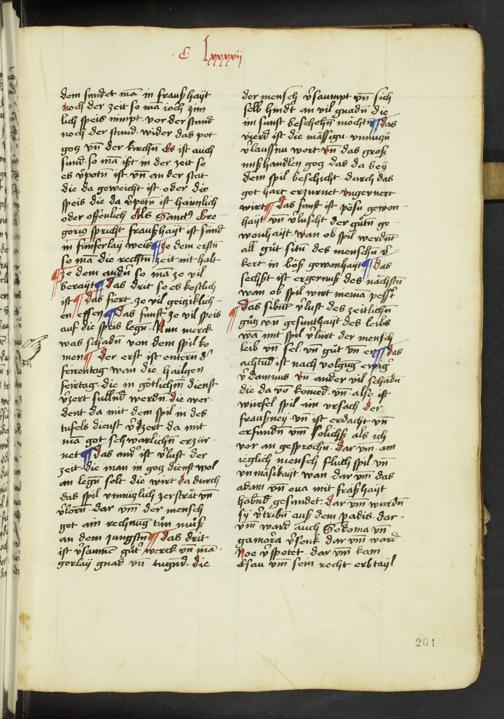 C lxxxxii
dem sundet mā in fraußhayt
noch der zeit so mā ioch zim
lich speis nimpt vor der stund
noch der stund wider das pot
goz vn̄ der kirchn Es ist auch
sund so mā ist in der zeit so
es v̓potn ist vn̄ an der stat
die da geweicht ist oder die
speis die da v̓potn ist haimlich
oder offenlich Als Sanctꝰ Gre
gori spricht fraußhayt ist sund
in funferlay weis ¶ ze dem erstn
so mā die rechtn zeit nit halt
¶ Ze dem andn̄ so mā ze vil
¶ das drit so es kostlich
ist ¶ das fiert ze vil geiziklich
en essen ¶ das funft ze vil speis
auf die speis legn Nun merck
was schadn̄ von dem spil ko
men ¶ der erst ist
feirentag wen die hailgen
feirtag die in götlichm dienst
v̓zert sulln̄d werdn̄ die wer
dent da mit dem spil in des
tufels dienst v̓zert da mit
mā got schwarlichn̄ erzür
net ¶ das and ist v̓lust der
zeit die man in goz dienst wol
an legn solt die wirt da durch
das spil vnnuzlich zersträt vn̄
v̓lorn dar vm̄ der mensch
got ain rechnūg tun mūß
an dem jungstn ¶ das drit
ist v̓saumē gūt werck vn̄ mā
gerlay gnad vn̄ tugn̄d die
der mensch v̓saumpt vn̄ sich
selb hindt an vil gnadn̄ die
im sunst beschehn̄ möchtn ¶ das
vierd ist die mässigū vnnuzū
v̓laussnū wort vn̄ das groß
mißhandlen goz das da bey
dem spil beschicht durch das
got hart erzurnet
wirt ¶ das funft ist pöse gewon
hayt vn̄ v̓luscht der gūtn ge
wonhayt wan ob spil werdn̄
all gūt sitn̄ des menschn̄ v̓
kert in böß gewonhayt ¶ das
sechst ist ergernuß des nächstn
wan ob spil wirt nema pesst
¶ das sibint v̓lust des zeitlichn
gūtz vn̄ gesunthayt des leibs
wā mit spil v̓lürt der mensch
leib vn̄ sel vn̄ gūt vn̄ er ¶ das
achtūd ist nach volgūg ewig
v̓damnus vn̄ ander vil schadn̄
die da vō komed vn̄ also ist
würfel spil ain vrsach der
fraußney vn̄ ist erdacht vn̄
erfundn̄ vm̄ solichß als ich
vor an gesprochn dar vm̄ ain
ieglich mensch fliuch spil vn̄
vnmäsikayt wan dar vm̄ das
adam vn̄ eva mit fraßhayt
habn̄d gesundet dar vm̄ wurdn̄
sy v̓tribn̄ auß dem padis dar
vm̄ ward auch Sodoma vn̄
gamora v̓senkt dar vm̄ ward
Noe v̓spotet dar vm̄ kam
Esau vm̄ sein recht erbtayl
201